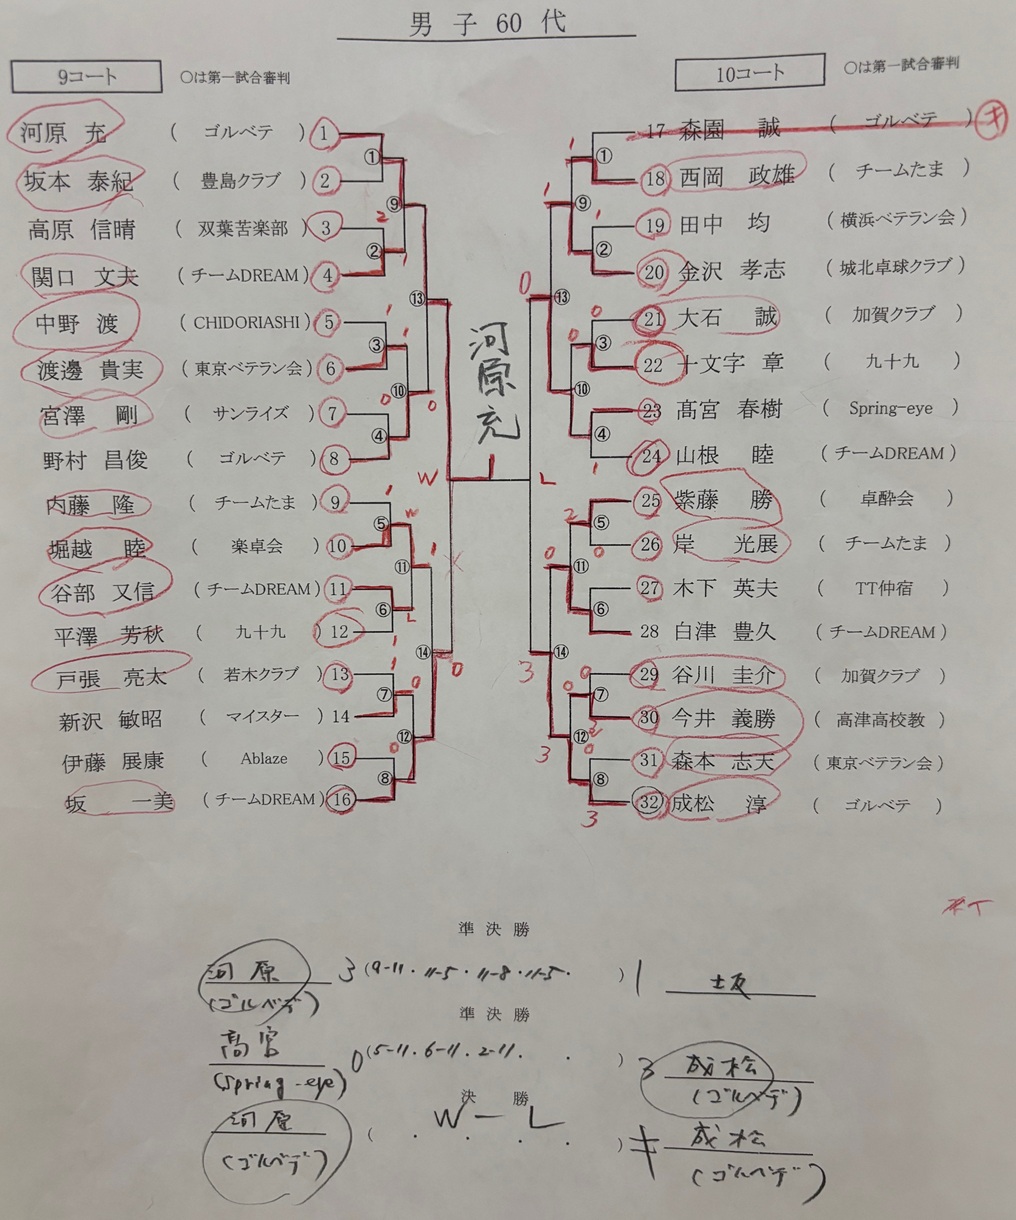 男子60代
9コート
○は第一試合審判
10コート
○は第一試合審判
河原 充 ( ゴルベテ ) 1
坂本 泰紀 ( 豊島クラブ ) 2
高原 信晴 ( 双葉苦楽部 ) 3
関口 文夫 (チームDREAM) 4
中野 渡 ( CHIDORIASHI ) 5
渡邊 貴実 (東京ベテラン会) 6
宮澤 剛 ( サンライズ ) 7
野村 昌俊 ( ゴルベテ ) 8
内藤 隆 ( チームたま ) 9
堀越 睦 ( 楽卓会 ) 10
谷部 又信 (チームDREAM) 11
平澤 芳秋 ( 九十九 ) 12
戸張 亮太 ( 若木クラブ ) 13
新沢 敏昭 ( マイスター ) 14
伊藤 展康 ( Ablaze ) 15
坂 一美 (チームDREAM) 16
河原充
W L
17 森園 誠 ( ゴルベテ ) キ
18 西岡 政雄 ( チームたま )
19 田中 均 (横浜ベテラン会)
20 金沢 孝志 (城北卓球クラブ)
21 大石 誠 ( 加賀クラブ )
22 十文字 章 ( 九十九 )
23 髙宮 春樹 ( Spring-eye )
24 山根 睦 (チームDREAM)
25 紫藤 勝 ( 卓酔会 )
26 岸 光展 ( チームたま )
27 木下 英夫 ( TT仲宿 )
28 白津 豊久 (チームDREAM)
29 谷川 圭介 ( 加賀クラブ )
30 今井 義勝 ( 高津高校教 )
31 森本 志天 (東京ベテラン会)
32 成松 淳 ( ゴルベテ )
準決勝
河原 3 (9-11・11-5・11-8・11-5・ ) 1 坂
(ゴルベテ)
準決勝
髙宮 0 (5-11・6-11・2-11・ ・ ) 3 成松
(Spring-eye) (ゴルベテ)
決勝
河原 ( ・ W - L ・ ) キ 成松
(ゴルベテ) (ゴルベテ)